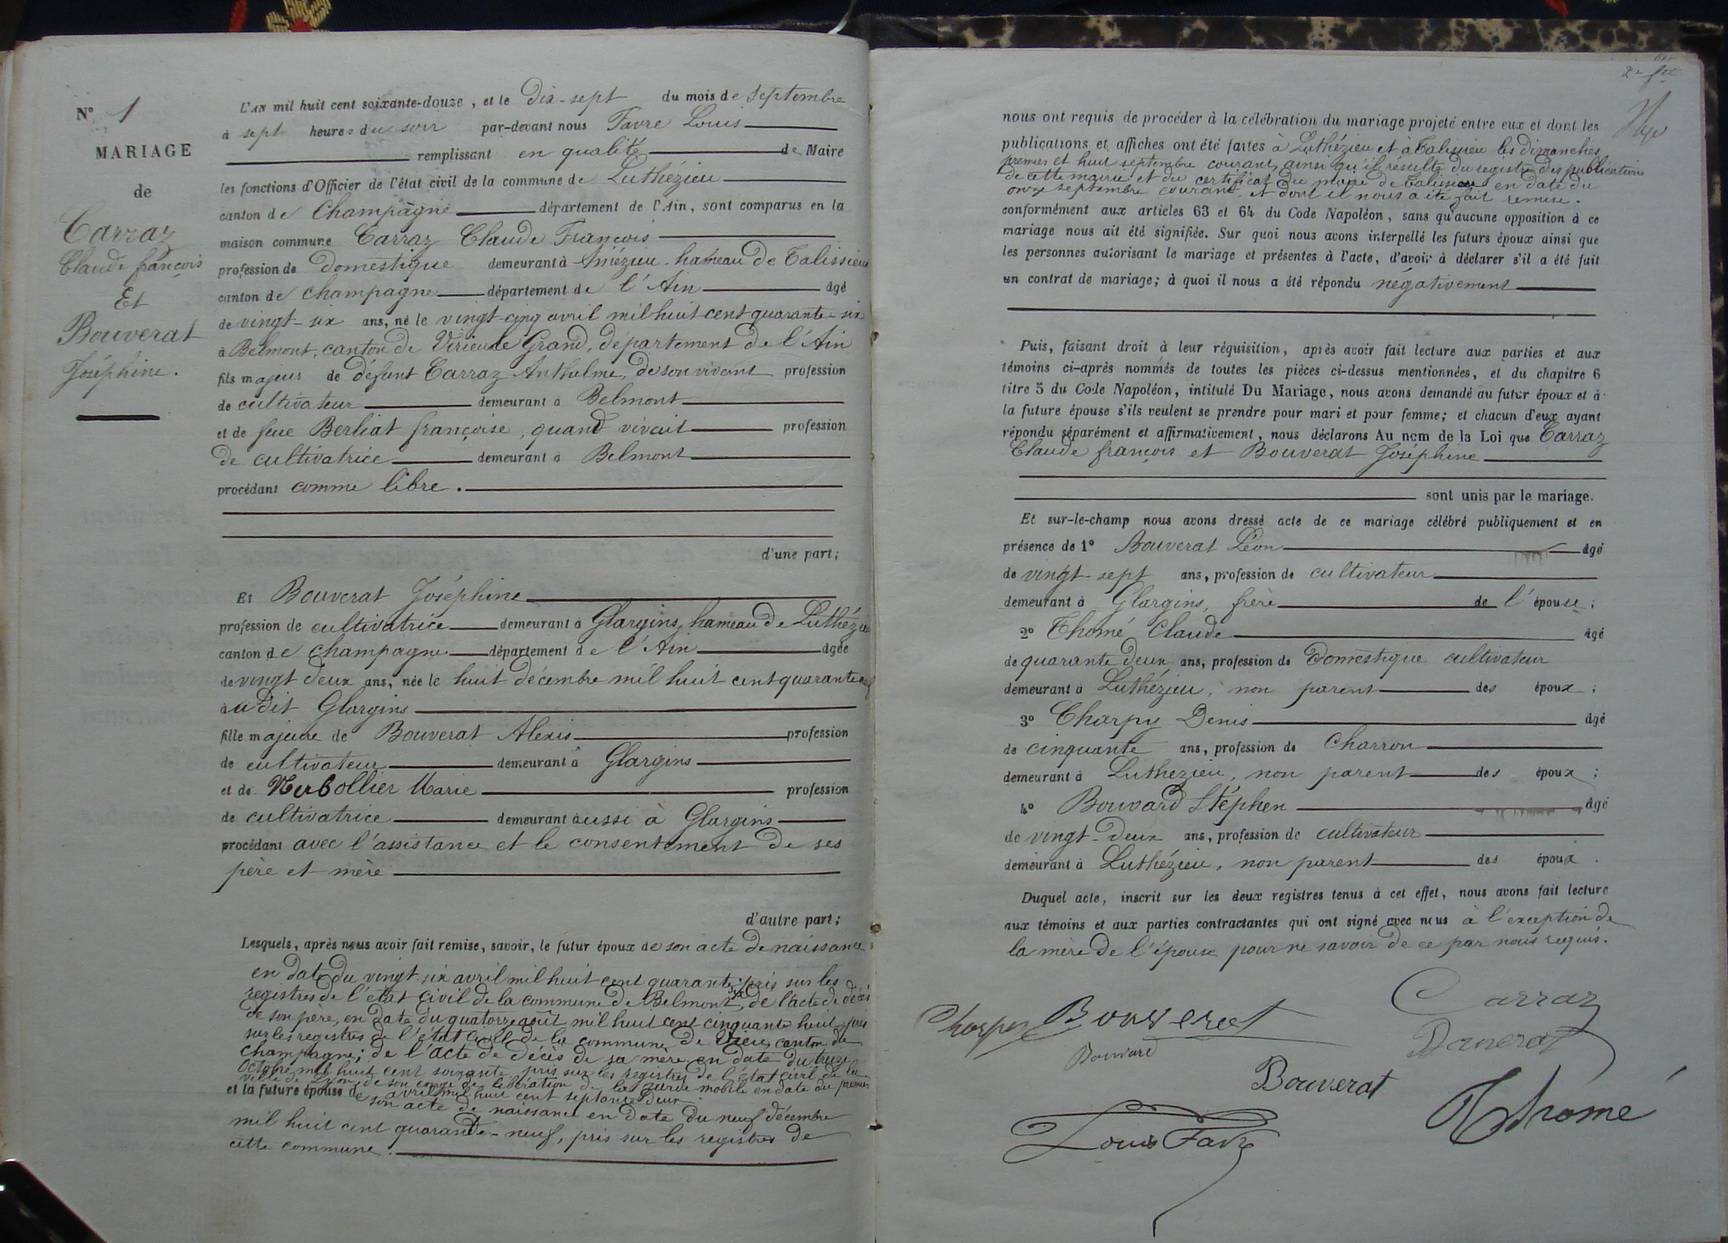 N° 1
MARIAGE
de
Carraz
Claude françois
Et
Bouverat
Joséphine.
L'AN mil huit cent soixante-douze, et le dix-sept du mois de Septembre
à sept heures du soir par-devant nous Favre Louis
remplissant en qualité de Maire
les fonctions d'Officier de l'état civil de la commune de Luthézieu
canton de Champagne département de l'Ain, sont comparus en la
maison commune Carraz Claude François
profession de domestique demeurant à Amézieu, hameau de Talissieu
canton de champagne département de l'Ain âgé
de vingt-six ans, né le vingt-cinq avril mil huit cent quarante-six
à Belmont, canton de Virieu le Grand, département de l'Ain
fils majeur de défunt Carraz Anthelme, de son vivant profession
de cultivateur demeurant à Belmont
et de feue Berliat françoise, quand vivait profession
de cultivatrice demeurant à Belmont
procédant comme libre.
d'une part;
Et Bouverat Joséphine
profession de cultivatrice demeurant à Glargins, hameau de Luthézieu
canton de champagne département de l'Ain âgée
de vingt deux ans, née le huit décembre mil huit cent quarante neuf
audit Glargins
fille majeure de Bouverat Alexis profession
de cultivateur demeurant à Glargins
et de Marie profession
de cultivatrice demeurant aussi à Glargins
procédant avec l'assistance et le consentement de ses
père et mère
d'autre part;
Lesquels, après nous avoir fait remise, savoir, le futur époux de son acte de naissance
en date du vingt six avril mil huit cent quarante six pris sur les
registres de l'état civil de la commune de Belmont, de l'acte de décès
de son père, en date du quatorze août mil huit cent cinquante huit, pris
sur les registres de l'état civil de la commune de canton de
champagne; de l'acte de décès de sa mère en date du
octobre mil huit cent soixante, pris sur les registres de l'état civil de la
ville de Lyon; de son congé de libération de la garde mobile en date du premier
avril mil huit cent septante deux
et la future épouse de son acte de naissance en date du neuf décembre
mil huit cent quarante-neuf, pris sur les registres de
cette commune.
nous ont requis de procéder à la célébration du mariage projeté entre eux et dont les
publications et affiches ont été faites à Luthézieu et à Talissieu les dimanches
premier et huit septembre courant, ainsi qu'il résulte du registre des publications
de cette mairie et du certificat du maire de Talissieu en date du
onze septembre courant et dont il nous a été fait remise.
conformément aux articles 63 et 64 du Code Napoléon, sans qu'aucune opposition à ce
mariage nous ait été signifiée. Sur quoi nous avons interpellé les futurs époux ainsi que
les personnes autorisant le mariage et présentes à l'acte, d'avoir à déclarer s'il a été fait
un contrat de mariage; à quoi il nous a été répondu négativement
Puis, faisant droit à leur réquisition, après avoir fait lecture aux parties et aux
témoins ci-après nommés de toutes les pièces ci-dessus mentionnées, et du chapitre 6
titre 5 du Code Napoléon, intitulé Du Mariage, nous avons demandé au futur époux et à
la future épouse s'ils veulent se prendre pour mari et pour femme; et chacun d'eux ayant
répondu séparément et affirmativement, nous déclarons Au nom de la Loi que Carraz
Claude françois et Bouverat Joséphine
sont unis par le mariage.
Et sur-le-champ nous avons dressé acte de ce mariage célébré publiquement et en
présence de 1° Bouverat Léon âgé
de vingt-sept ans, profession de cultivateur
demeurant à Glargins, frère de l'épouse;
2° Thomé Claude âgé
de quarante deux ans, profession de domestique cultivateur
demeurant à Luthézieu, non parent des époux;
3° Charpy Denis âgé
de cinquante ans, profession de Charron
demeurant à Luthezieu, non parent des époux;
4° Bouvard Stéphen âgé
de vingt-deux ans, profession de cultivateur
demeurant à Luthézieu, non parent des époux.
Duquel acte, inscrit sur les deux registres tenus à cet effet, nous avons fait lecture
aux témoins et aux parties contractantes qui ont signé avec nous à l'exception de
la mère de l'épouse pour ne savoir de ce par nous requis.
Carraz
Charpy Bouverat
Bouverat
Bouvard
Bouverat
Thomé
Louis Favre